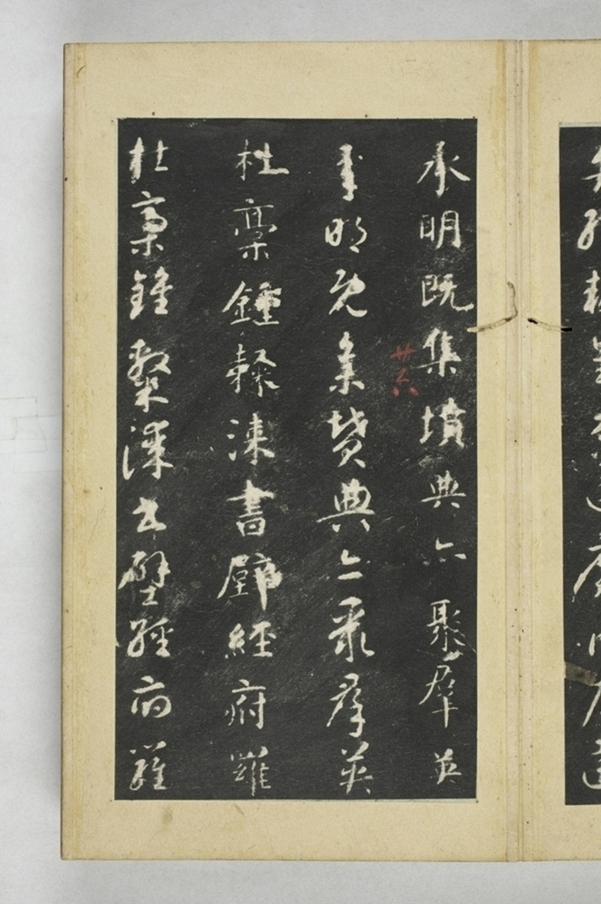 承明既集墳典亦聚羣英
廿六
承明既集墳典亦聚羣英
杜稾鍾隸漆書壁經府羅
杜稾鍾隸漆書壁經府羅